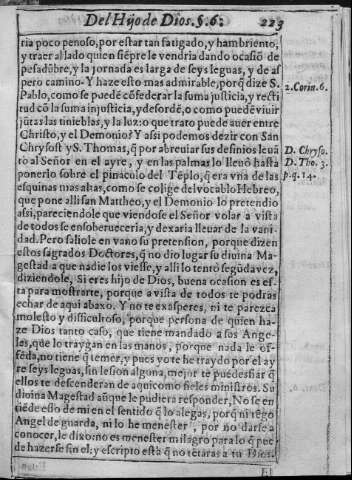 Del Hijo de Dios. §. 6. 223
ria poco penoso, por estar tan fatigado, y hambriento,
y traer al lado quien siẽpre le vendria dando ocasiõ de
pesadũbre, y la jornada es larga de seys leguas, y de as
pero camino. Y haze esto mas admirable, porq̃ dize S.
2. Corin. 6.
Pablo, como se puede cõfederar la suma justicia, y recti
tud cõ la suma injusticia, y desordẽ, o como puedẽ viuir
jũtas las tinieblas, y la luz: o que trato puede auer entre
Christo, y el Demonio? Y assi podemos dezir con San
Chrysost y S. Thomas, q̃ por abreuiar sus definios leuã
D. Chryso.
tò al Señor en el ayre, y en las palmas lo lleuò hasta
D. Tho. 3.
ponerlo sobre el pinaculo del Tẽplo, q̃ era vna de las
p. q. 14.
esquinas mas altas, como se colige del vocablo Hebreo,
que pone alli san Mattheo, y el Demonio lo pretendio
assi, pareciendole que viendose el Señor volar a vista
de todos se ensoberueceria, y dexaria lleuar de la vani-
dad. Pero saliole en vano su pretension, porque dizen
estos sagrados Doctores, q̃ no dio lugar su diuina Ma-
gestad a que nadie los viesse, y alli lo tentò segũda vez,
diziendole, Si eres hijo de Dios, buena ocasion es es-
ta para mostrarte, porque a vista de todos te podras
echar de aqui abaxo. Y no te exasperes, ni te parezca
molesto y dificultoso, porque persona de quien ha-
ze Dios tanto caso, que tiene mandado a sos Ange-
les, que lo traygan en las manos, porque nada le of-
fẽda, no tiene q̃ temer, y pues yo te he traydo por el ay
re seys leguas, sin lesion alguna, mejor te puedes fiar q̃
ellos te descenderan de aqui como fieles ministros. Su
diuina Magestad aũque le pudiera responder, No se en
tiẽde esso de mi en el sentido q̃ lo alegas, porq̃ ni tẽgo
Angel de guarda, ni lo he menester, por no darse a
conocer, le dixo: no es menester milagro para lo q̃ pue-
de hazerse sin el, y escripto està q̃ no tẽtaras a tu Dios.